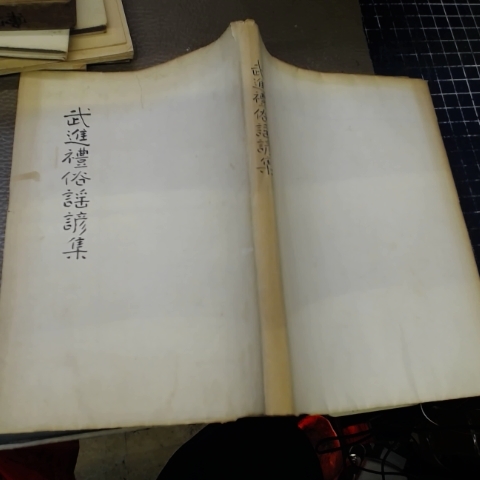 武進禮俗謠諺集
武進禮俗謠諺集